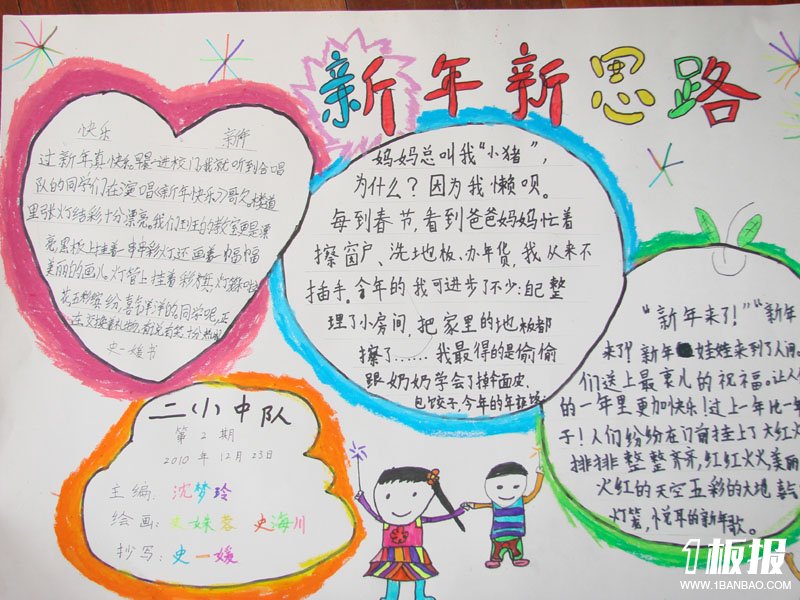 新年新思路
快乐 新年
过新年真快乐早晨一进校门我就听到合唱
队的同学们在演唱《新年快乐》哥久。楼道
里张灯结彩十分漂亮。我们班的教室更是漂
亮黑板上挂着一串串彩灯还画着一幅幅
美丽的画儿。灯管上挂着彩旗灯笼
花五彩缤纷喜气洋洋的同学呢正
在交换着礼物有说有笑十分热闹
史一媛书
妈妈总叫我“小猪”,
为什么?因为我懒呗。
每到春节,看到爸爸妈妈忙着
擦窗户、洗地板、办年货,我从来不
插手。今年的我可进步了不少:自己整
理了小房间,把家里的地板都
擦了……我最得的是偷偷
跟奶奶学会了擀面皮、
包饺子,今年的年夜饭
“新年来了!”“新年
来了!新年娃娃来到了人间。
们送上最衷儿的祝福。让人
的一年里更加快乐!过上一年比一年
子!人们纷纷在门前挂上了大红火
排排整整齐齐,红红火火,美丽
火红的天空五彩的大地喜气
灯笼,悦耳的新年歌。
二小中队
第2期
2010年12月23日
主编:沈梦玲
绘画:史姝蓉 史海川
抄写:史一媛
1板报
WWW.1BANBAO.COM